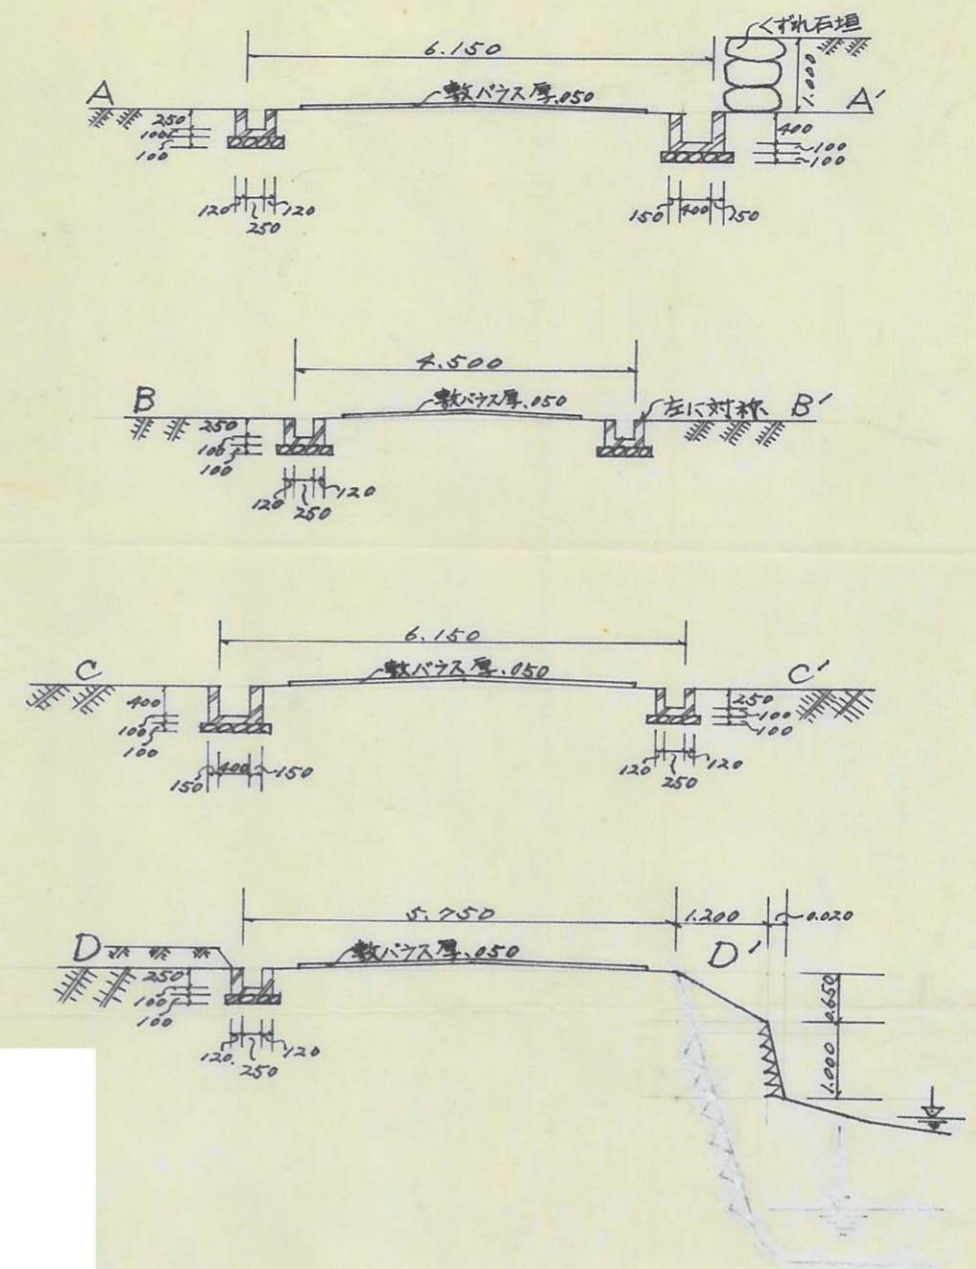 6.150
くずれ石垣
1.000
A
敷バラス厚.050
A'
250
100
100
400
100
100
120 250 120
150 400 150
4.500
B
敷バラス厚.050
左に対称
B'
250
100
100
120 250 120
6.150
C
敷バラス厚.050
C'
400
100
100
250
100
100
150 400 150
120 250 120
5.750
1.200
0.020
D
敷バラス厚.050
D'
250
100
100
0.650
1.000
120 250 120